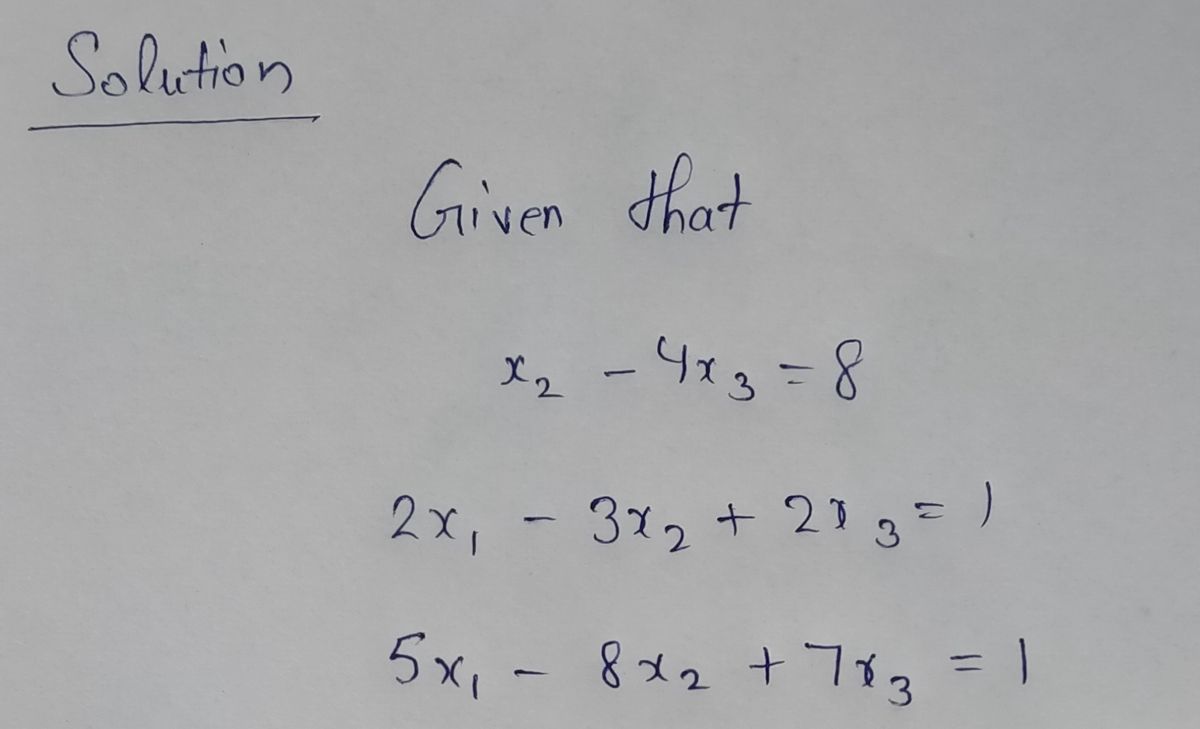 Solution
Given that
x₂ - 4x₃ = 8
2x₁ - 3x₂ + 2x₃ = 1
5x₁ - 8x₂ + 7x₃ = 1